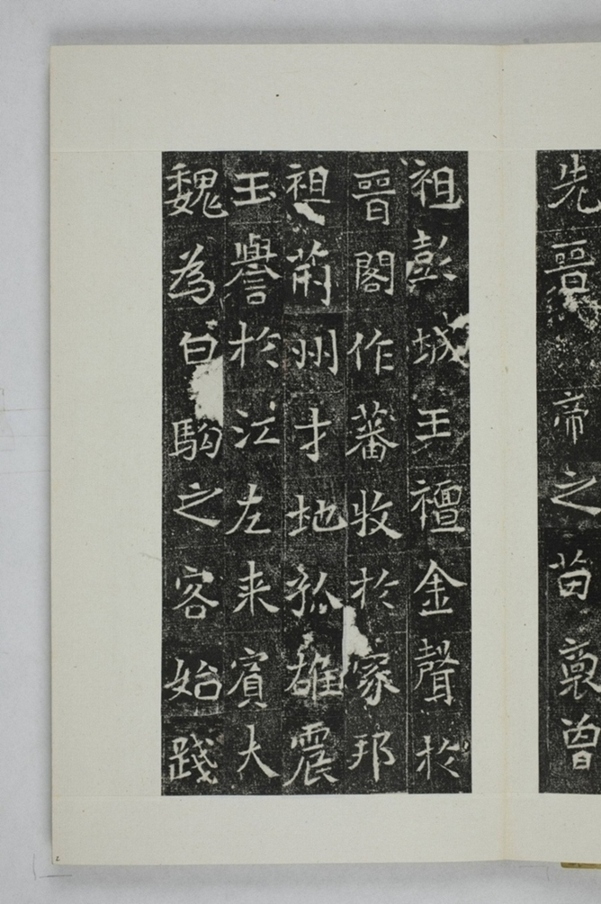 先晉帝之苗裔曾
祖彭城王襢金聲於
晉閣作蕃牧於家邦
祖荊州才地孤雄震
玉譽於江左来賓大
魏為白駒之客始踐